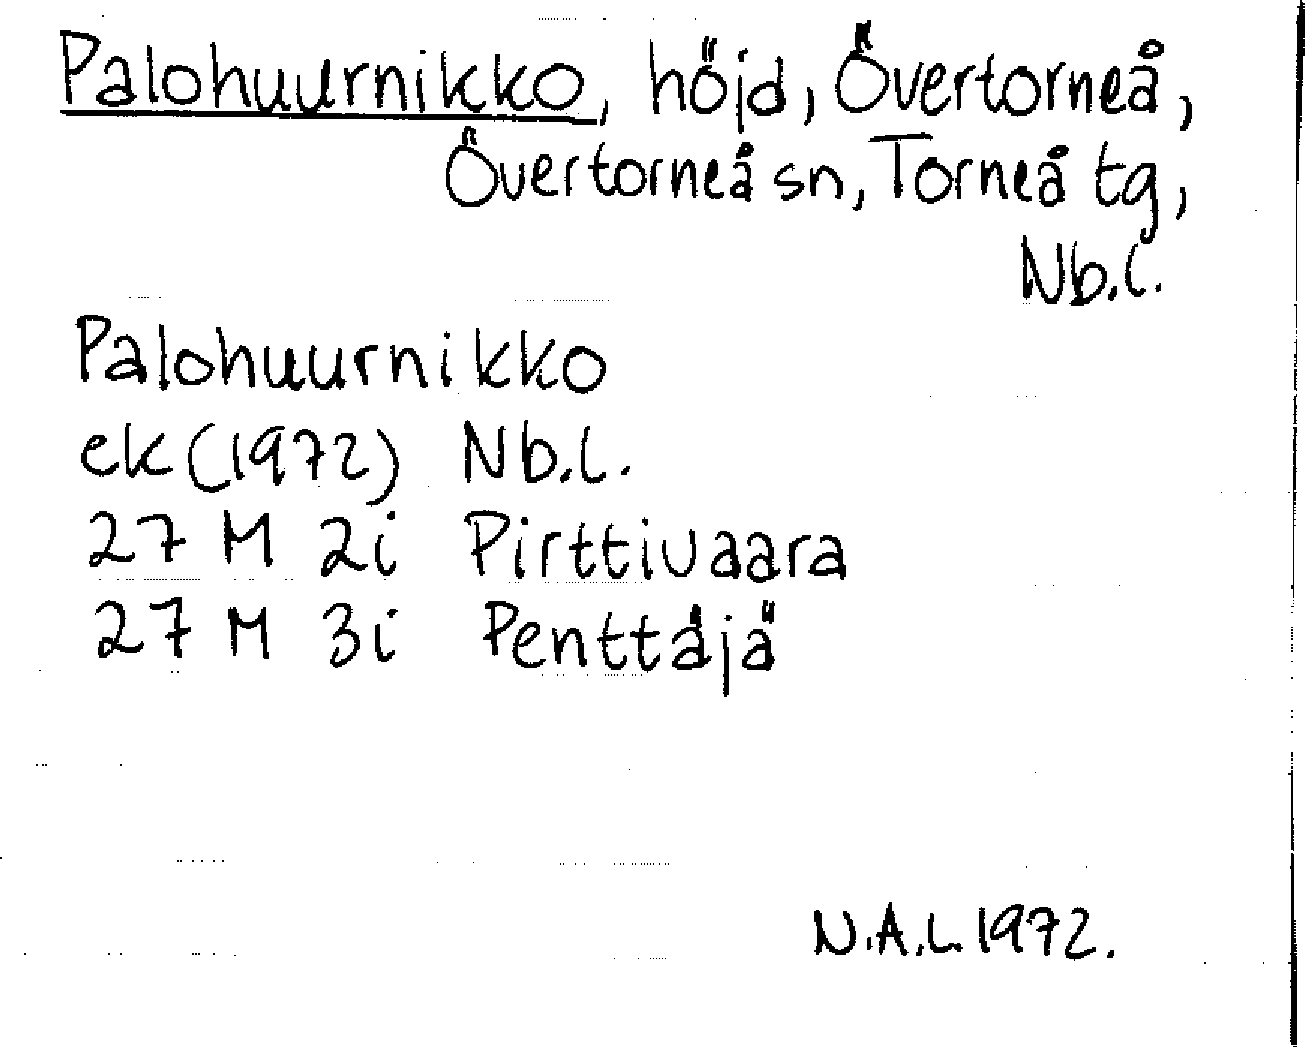 Palohuurnikko, höjd, Övertorneå,
Övertorneå sn, Torneå tg,
Nb.l.
Palohuurnikko
ek (1972) Nb.l.
27 M 2i Pirttivaara
27 M 3i Penttäjä
N.A.L. 1972.